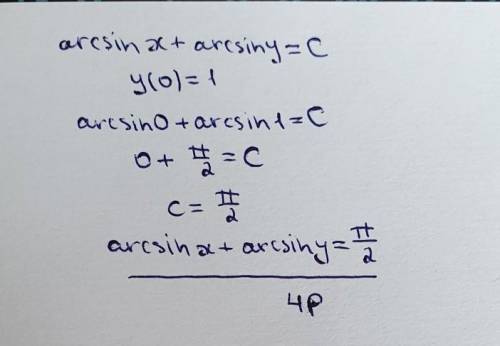 arcsin x + arcsin y = C
y(0) = 1
arcsin 0 + arcsin 1 = C
0 + π/2 = C
c = π/2
arcsin x + arcsin y = π/2
4p